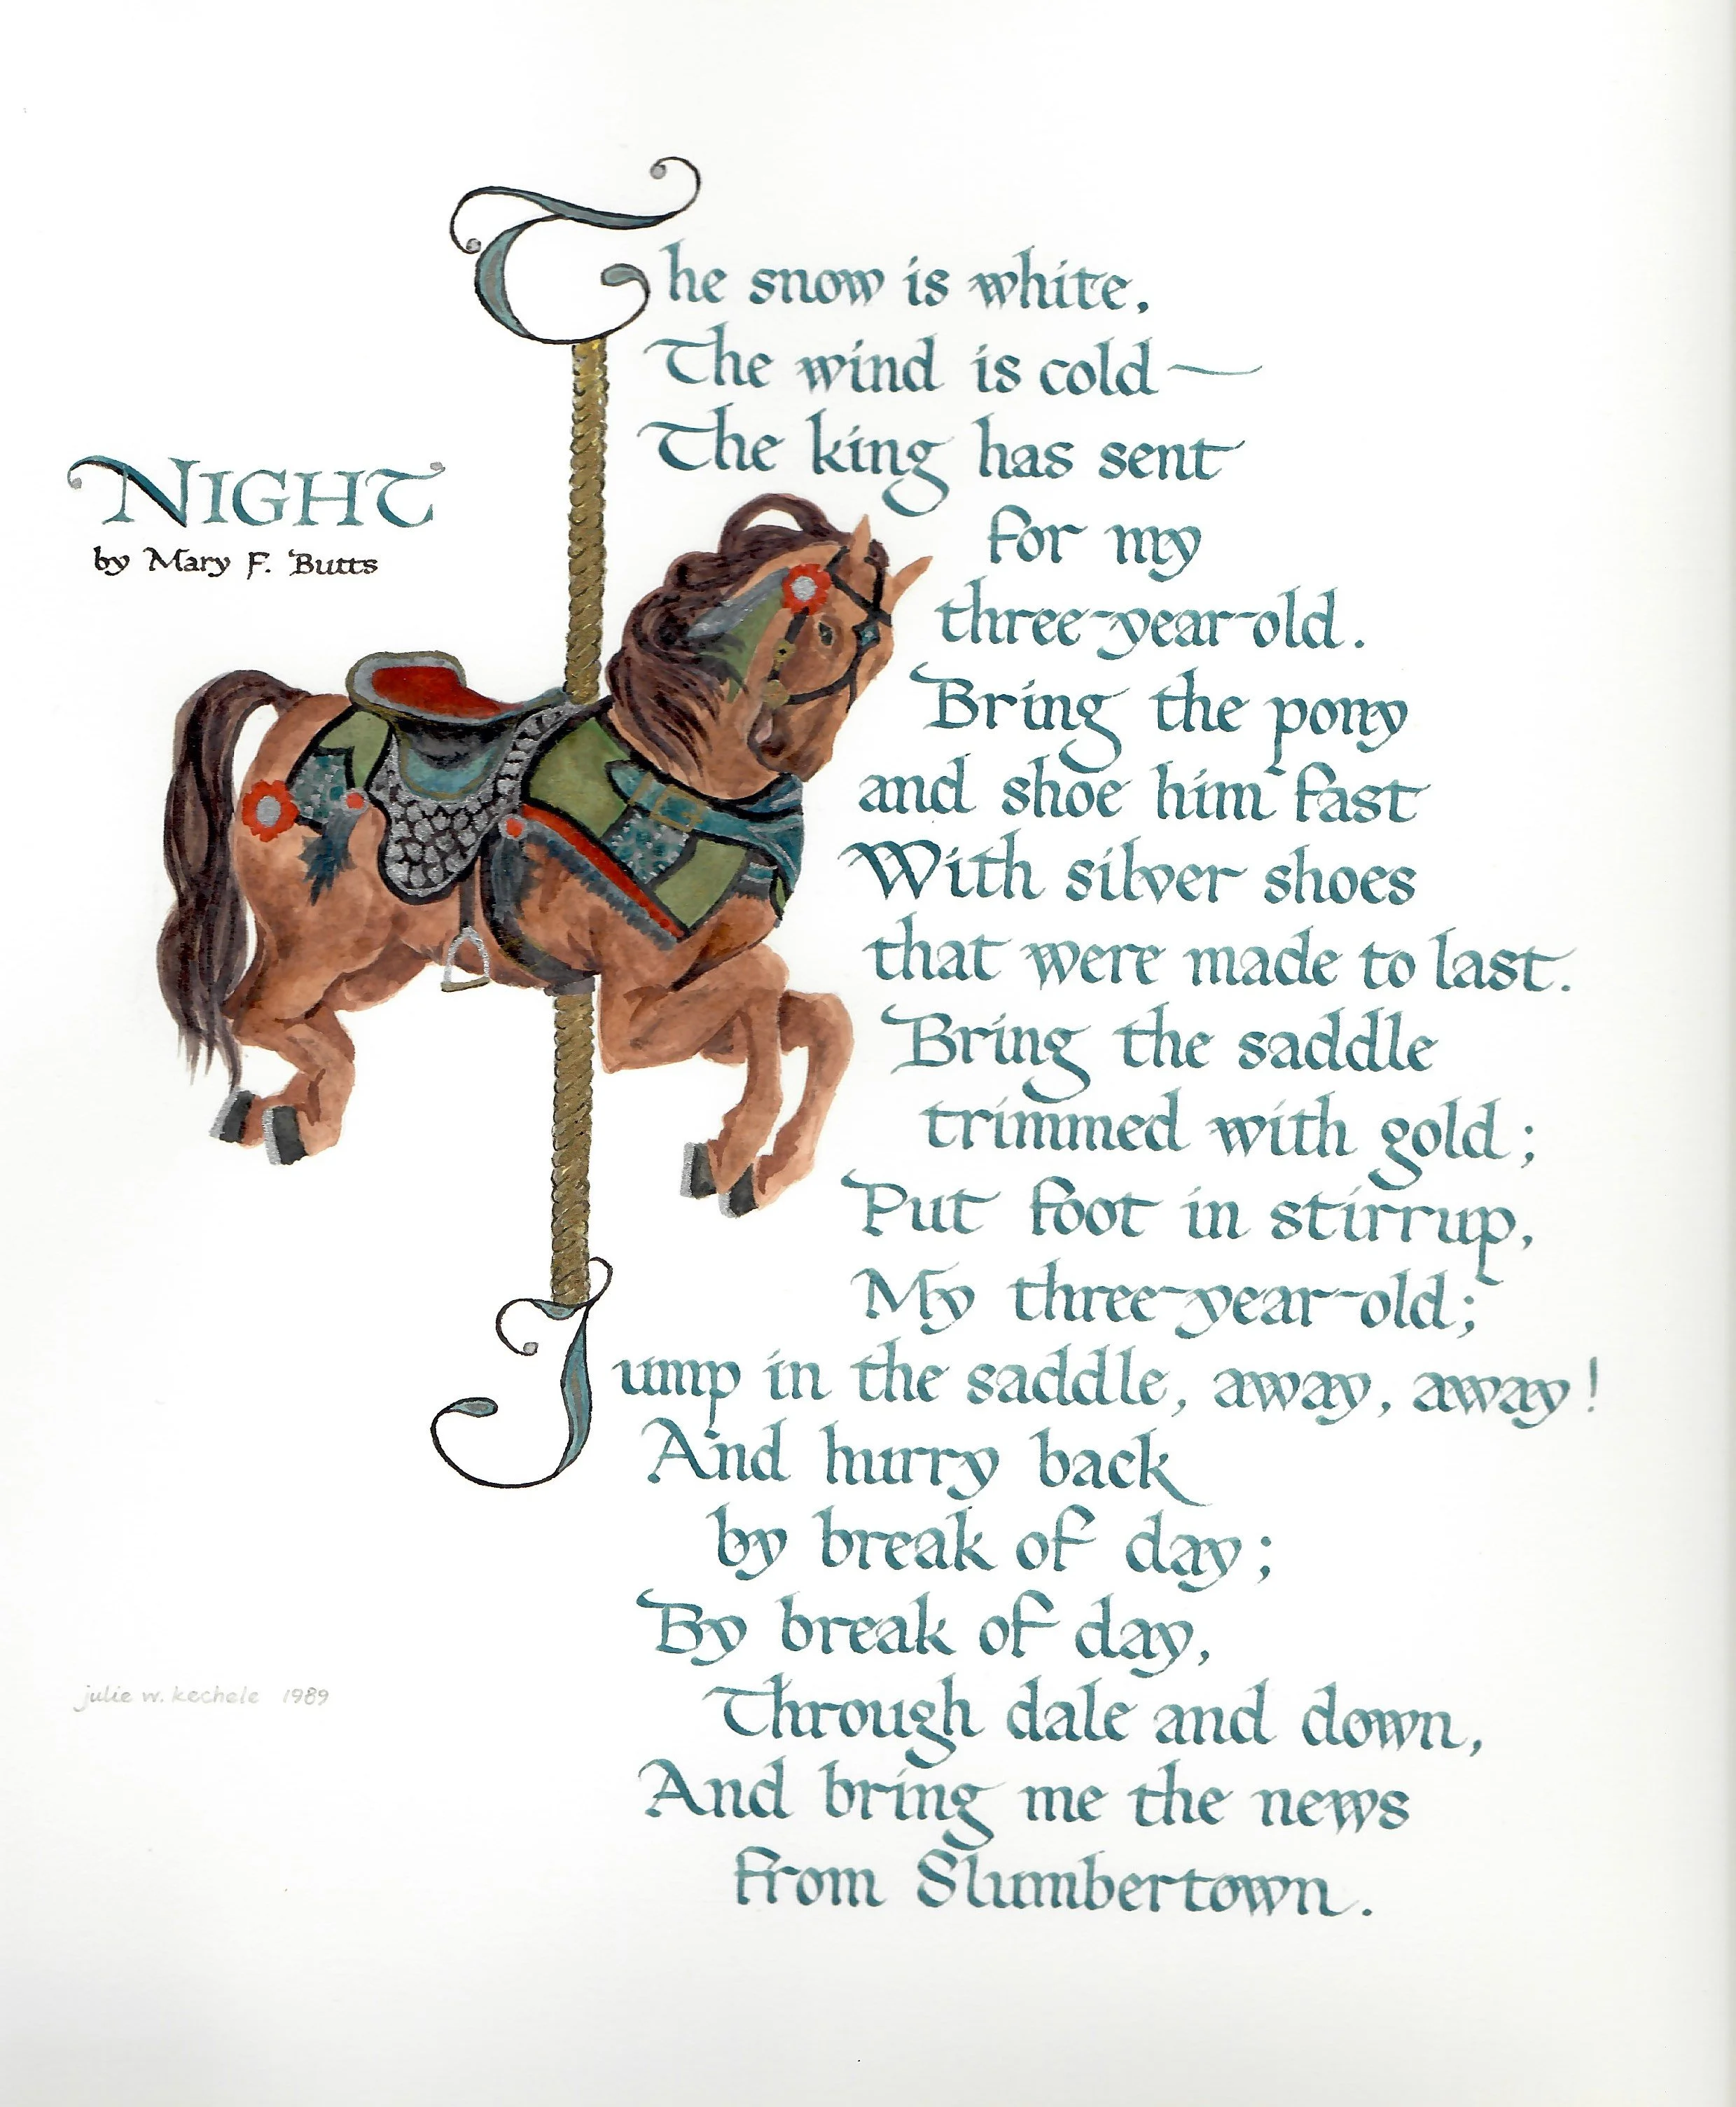 NIGHT
by Mary F. Butts
The snow is white,
The wind is cold—
The king has sent
for my
three-year-old.
Bring the pony
and shoe him fast
With silver shoes
that were made to last.
Bring the saddle
trimmed with gold;
Put foot in stirrup,
My three-year-old;
Jump in the saddle, away, away!
And hurry back
by break of day;
By break of day,
Through dale and down,
And bring me the news
from Slumbertown.
julie w. kechele 1989